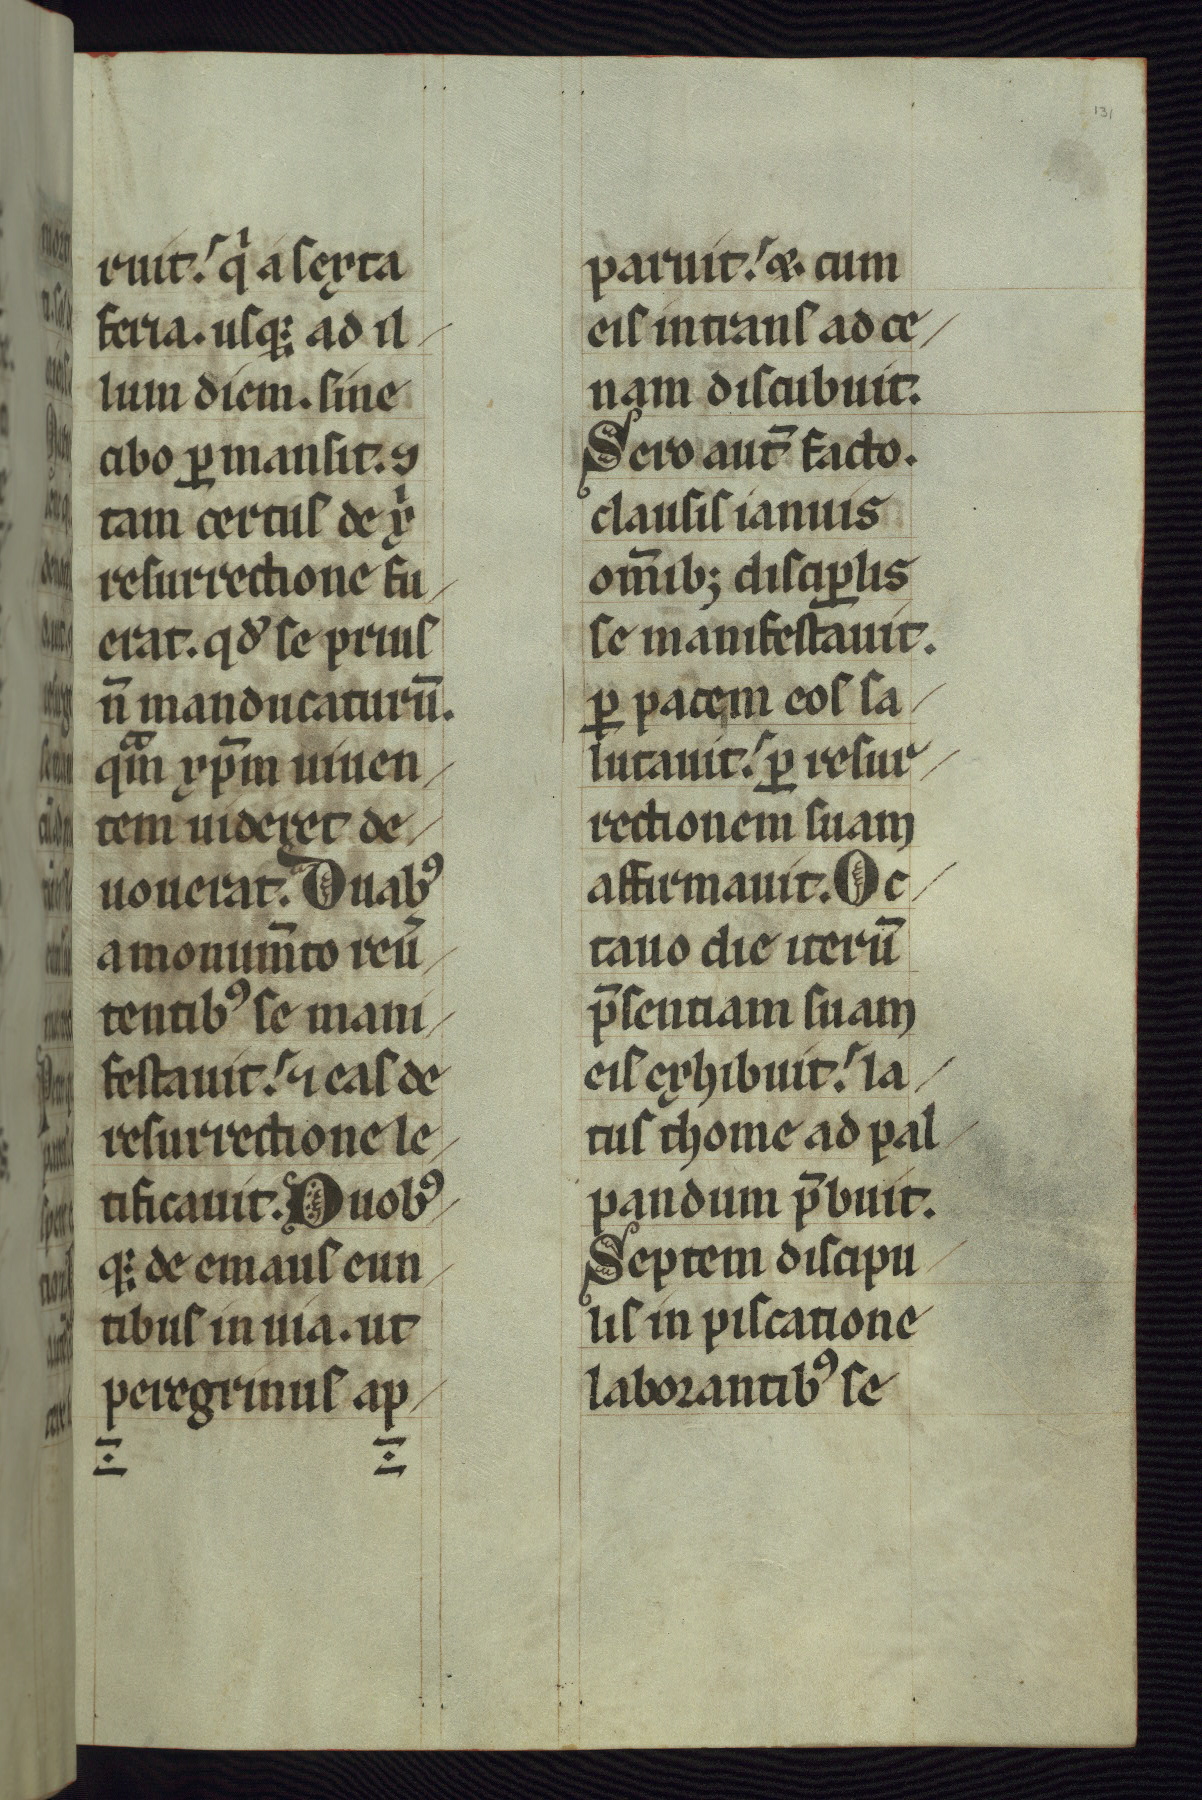 131
ruit. qͥ a sexta
feria. usq; ad il
lum diem. sine
cibo ꝑmansit. 9
tam certus de xͥ
resurrectione fu
erat. qd̕ se prius
n̄ manducaturū.
qᵃm xp̄m uiuen
tem uideret de
uouerat. Duab⁹
a monum̄to reū
tentib⁹ se mani
festauit. ⁊ eas de
resurrectione le
tificauit. Duob⁹
q; de emaus eun
tibus in uia. ut
peregrinus ap
paruit. &. cum
eis intrans ad ce
nam discubuit.
Sero aut̄ facto.
clausis ianuis
om̄ib; disciꝑlis
se manifestauit.
ꝑ pacem eos sa
lutauit. ꝑ resur
rectionem suam
affirmauit. Oc
tauo die iterū
p̄sentiam suam
eis exhibuit. la
tus thome ad pal
pandum p̄buit.
Septem discipu
lis in piscatione
laborantib⁹ se